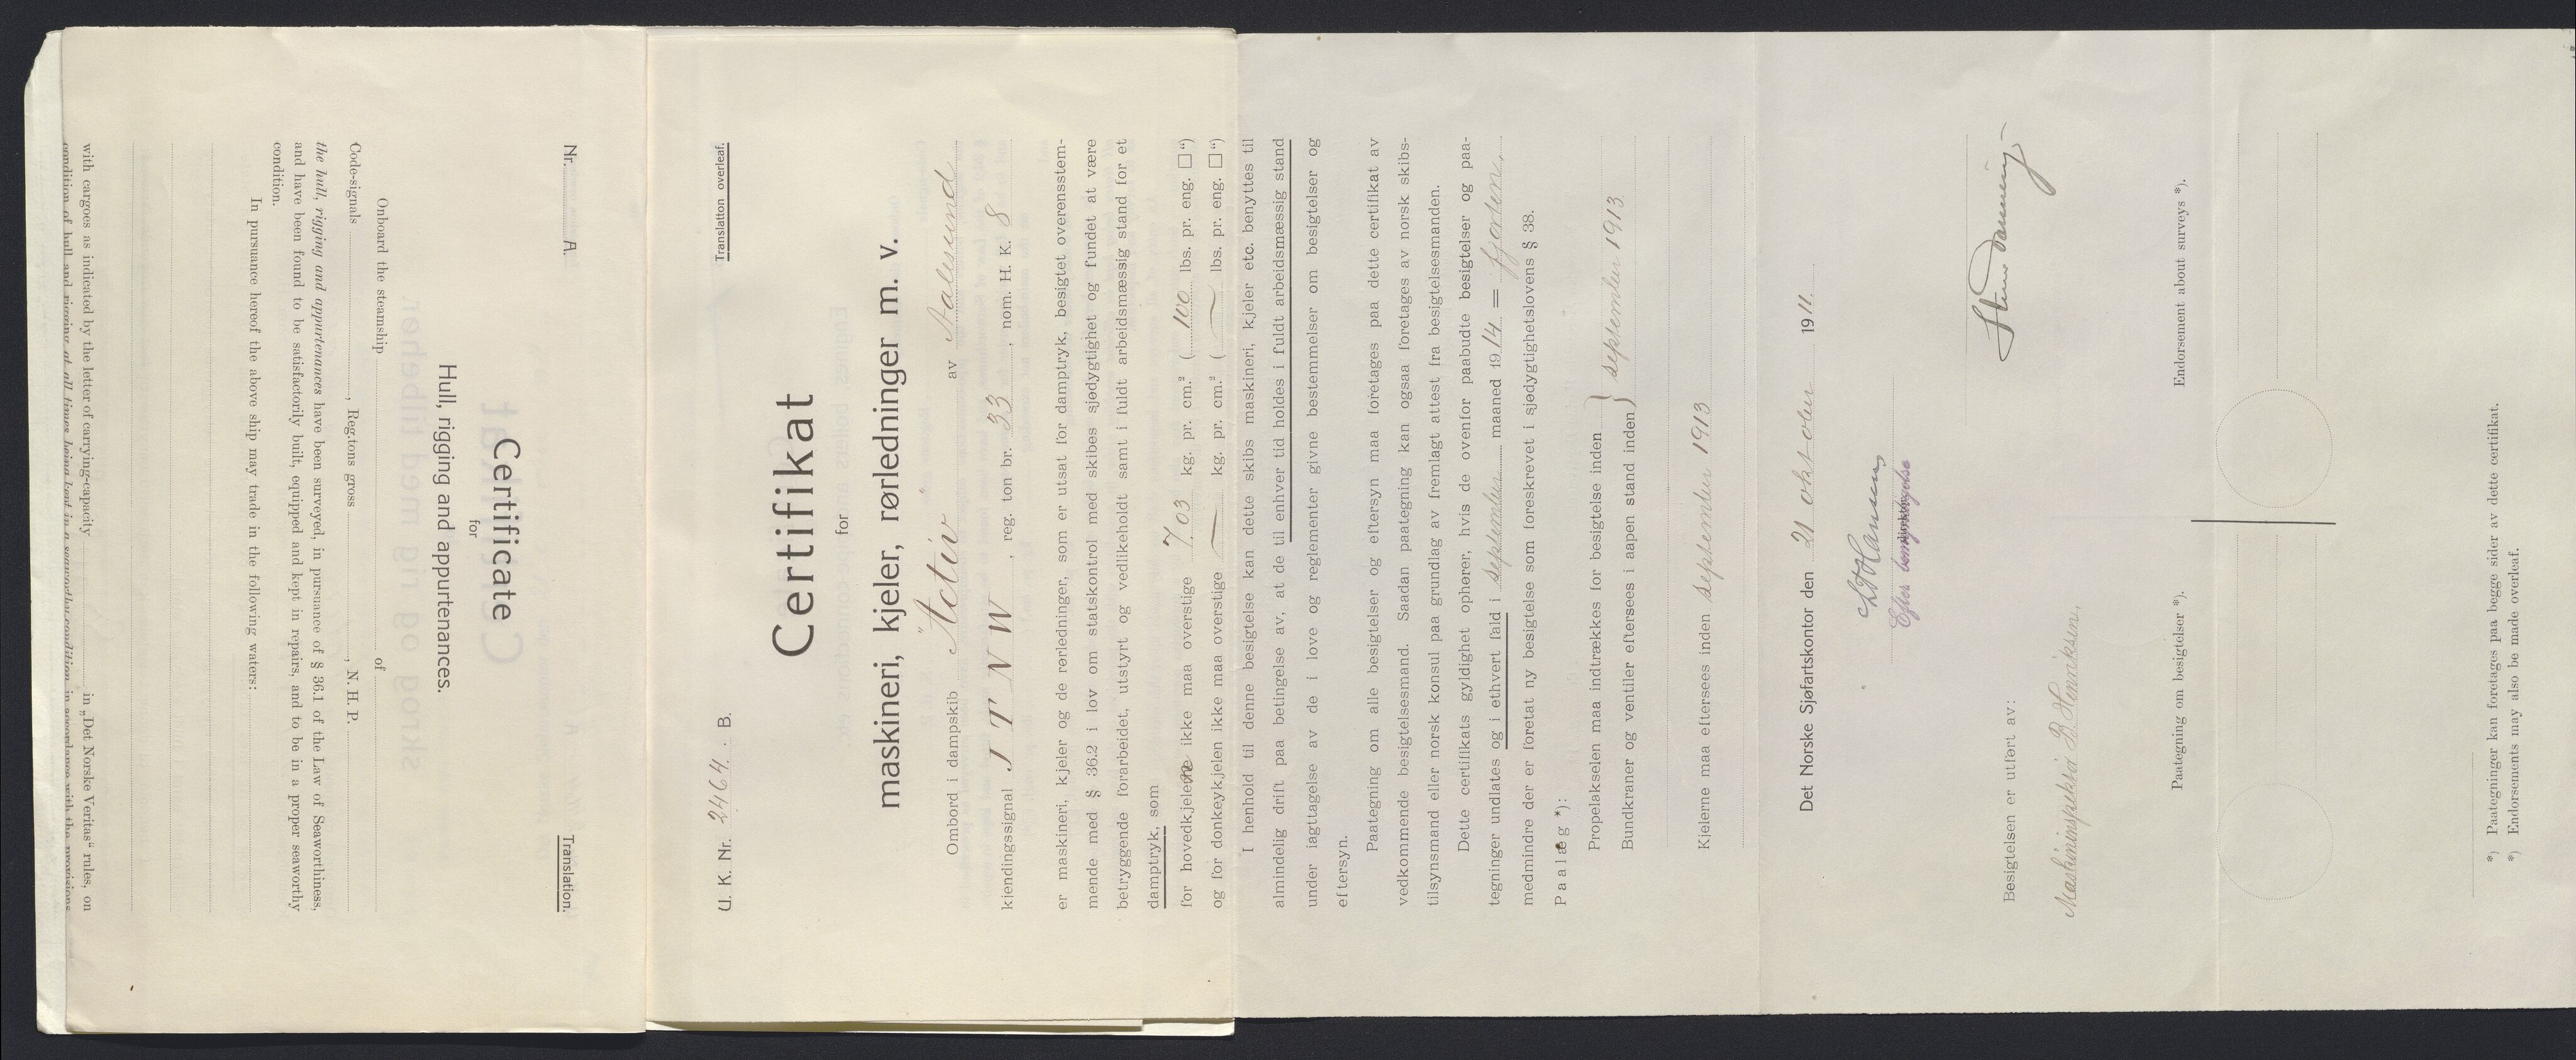 Translation.
Nr. A.
Certificate
for
Hull, rigging and appurtenances.
Onboard the steamship of
Code-signals , Reg.tons gross , N. H. P.
the hull, rigging and appurtenances have been surveyed, in pursuance of § 36.1 of the Law of Seaworthiness,
and have been found to be satisfactorily built, equipped and kept in repairs, and to be in a proper seaworthy
condition.
In pursuance hereof the above ship may trade in the following waters:
with cargoes as indicated by the letter of carrying-capacity in „Det Norske Veritas“ rules, on
condition of hull and rigging at all times being kept in a seaworthy condition in accordance with the provisions
U. K. Nr. 2464. B.
Translation overleaf.
Certifikat
for
maskineri, kjeler, rørledninger m. v.
Ombord i dampskib "Activ" av Aalesund
kjendingssignal J T N W , reg. ton br. 33 , nom. H. K. 8
er maskineri, kjeler og de rørledninger, som er utsat for damptryk, besigtet overensstem-
mende med § 36.2 i lov om statskontrol med skibes sjødygtighet og fundet at være
betryggende forarbeidet, utstyrt og vedlikeholdt samt i fuldt arbeidsmæssig stand for et
damptryk, som
for hovedkjelen ikke maa overstige 7.03 kg. pr. cm.² ( 100 lbs. pr. eng. □“)
og for donkeykjelen ikke maa overstige — kg. pr. cm.² ( — lbs. pr. eng. □“)
I henhold til denne besigtelse kan dette skibs maskineri, kjeler etc. benyttes til
almindelig drift paa betingelse av, at de til enhver tid holdes i fuldt arbeidsmæssig stand
under iagttagelse av de i love og reglementer givne bestemmelser om besigtelser og
eftersyn.
Paategning om alle besigtelser og eftersyn maa foretages paa dette certifikat av
vedkommende besigtelsesmand. Saadan paategning kan ogsaa foretages av norsk skibs-
tilsynsmand eller norsk konsul paa grundlag av fremlagt attest fra besigtelsesmanden.
Dette certifikats gyldighet ophører, hvis de ovenfor paabudte besigtelser og paa-
tegninger undlates og i ethvert fald i september maaned 1914 = fjorten,
medmindre der er foretat ny besigtelse som foreskrevet i sjødygtighetslovens § 38.
Paalæg *):
Propelakselen maa indtrækkes for besigtelse inden
Bundkraner og ventiler eftersees i aapen stand inden } september 1913
Kjelerne maa eftersees inden september 1913
Det Norske Sjøfartskontor den 21 oktober 1911.
Efter bemyndigelse
Besigtelsen er utført av:
Maskininspektør B. Henriksen,
Paategning om besigtelser *).
Endorsement about surveys *).
*) Paategninger kan foretages paa begge sider av dette certifikat.
*) Endorsements may also be made overleaf.